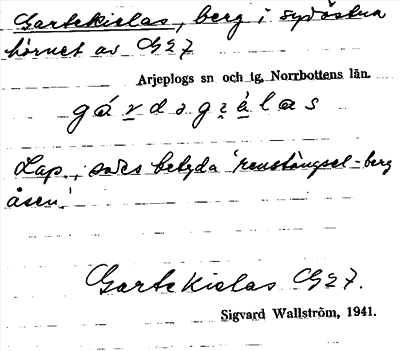 Gartekielas, berg i sydöstra
hörnet av G27
Arjeplogs sn och tg, Norrbottens län.
gárdəgielas
Lap., sades betyda 'renstängsel-berg
åsen'
Gartekielas G27.
Sigvard Wallström, 1941.